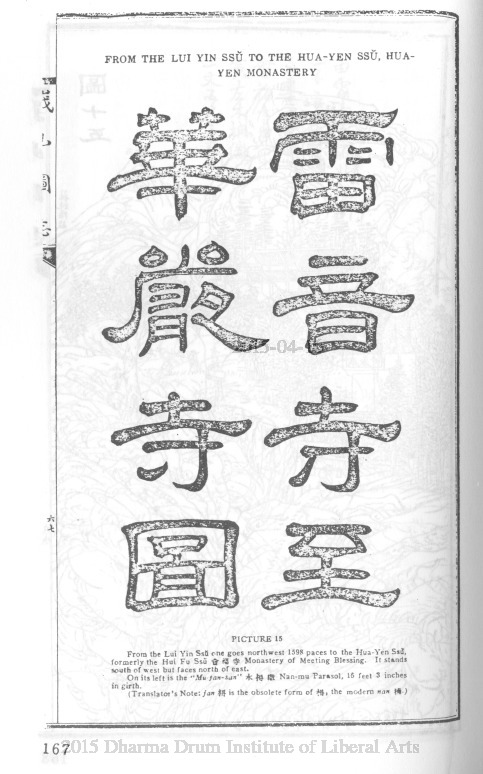 FROM THE LUI YIN SSŬ TO THE HUA-YEN SSŬ, HUA-
YEN MONASTERY
雷音寺至
華嚴寺圖
六七
PICTURE 15
From the Lui Yin Ssŭ one goes northwest 1598 paces to the Hua-Yen Ssŭ,
formerly the Hui Fu Ssŭ 會福寺 Monastery of Meeting Blessing. It stands
south of west but faces north of east.
On its left is the "Mu-fan-san" 木 Nan-mu Parasol, 15 feet 3 inches
in girth.
(Translator's Note: fan is the obsolete form of the modern nan)
167
2015 Dharma Drum Institute of Liberal Arts